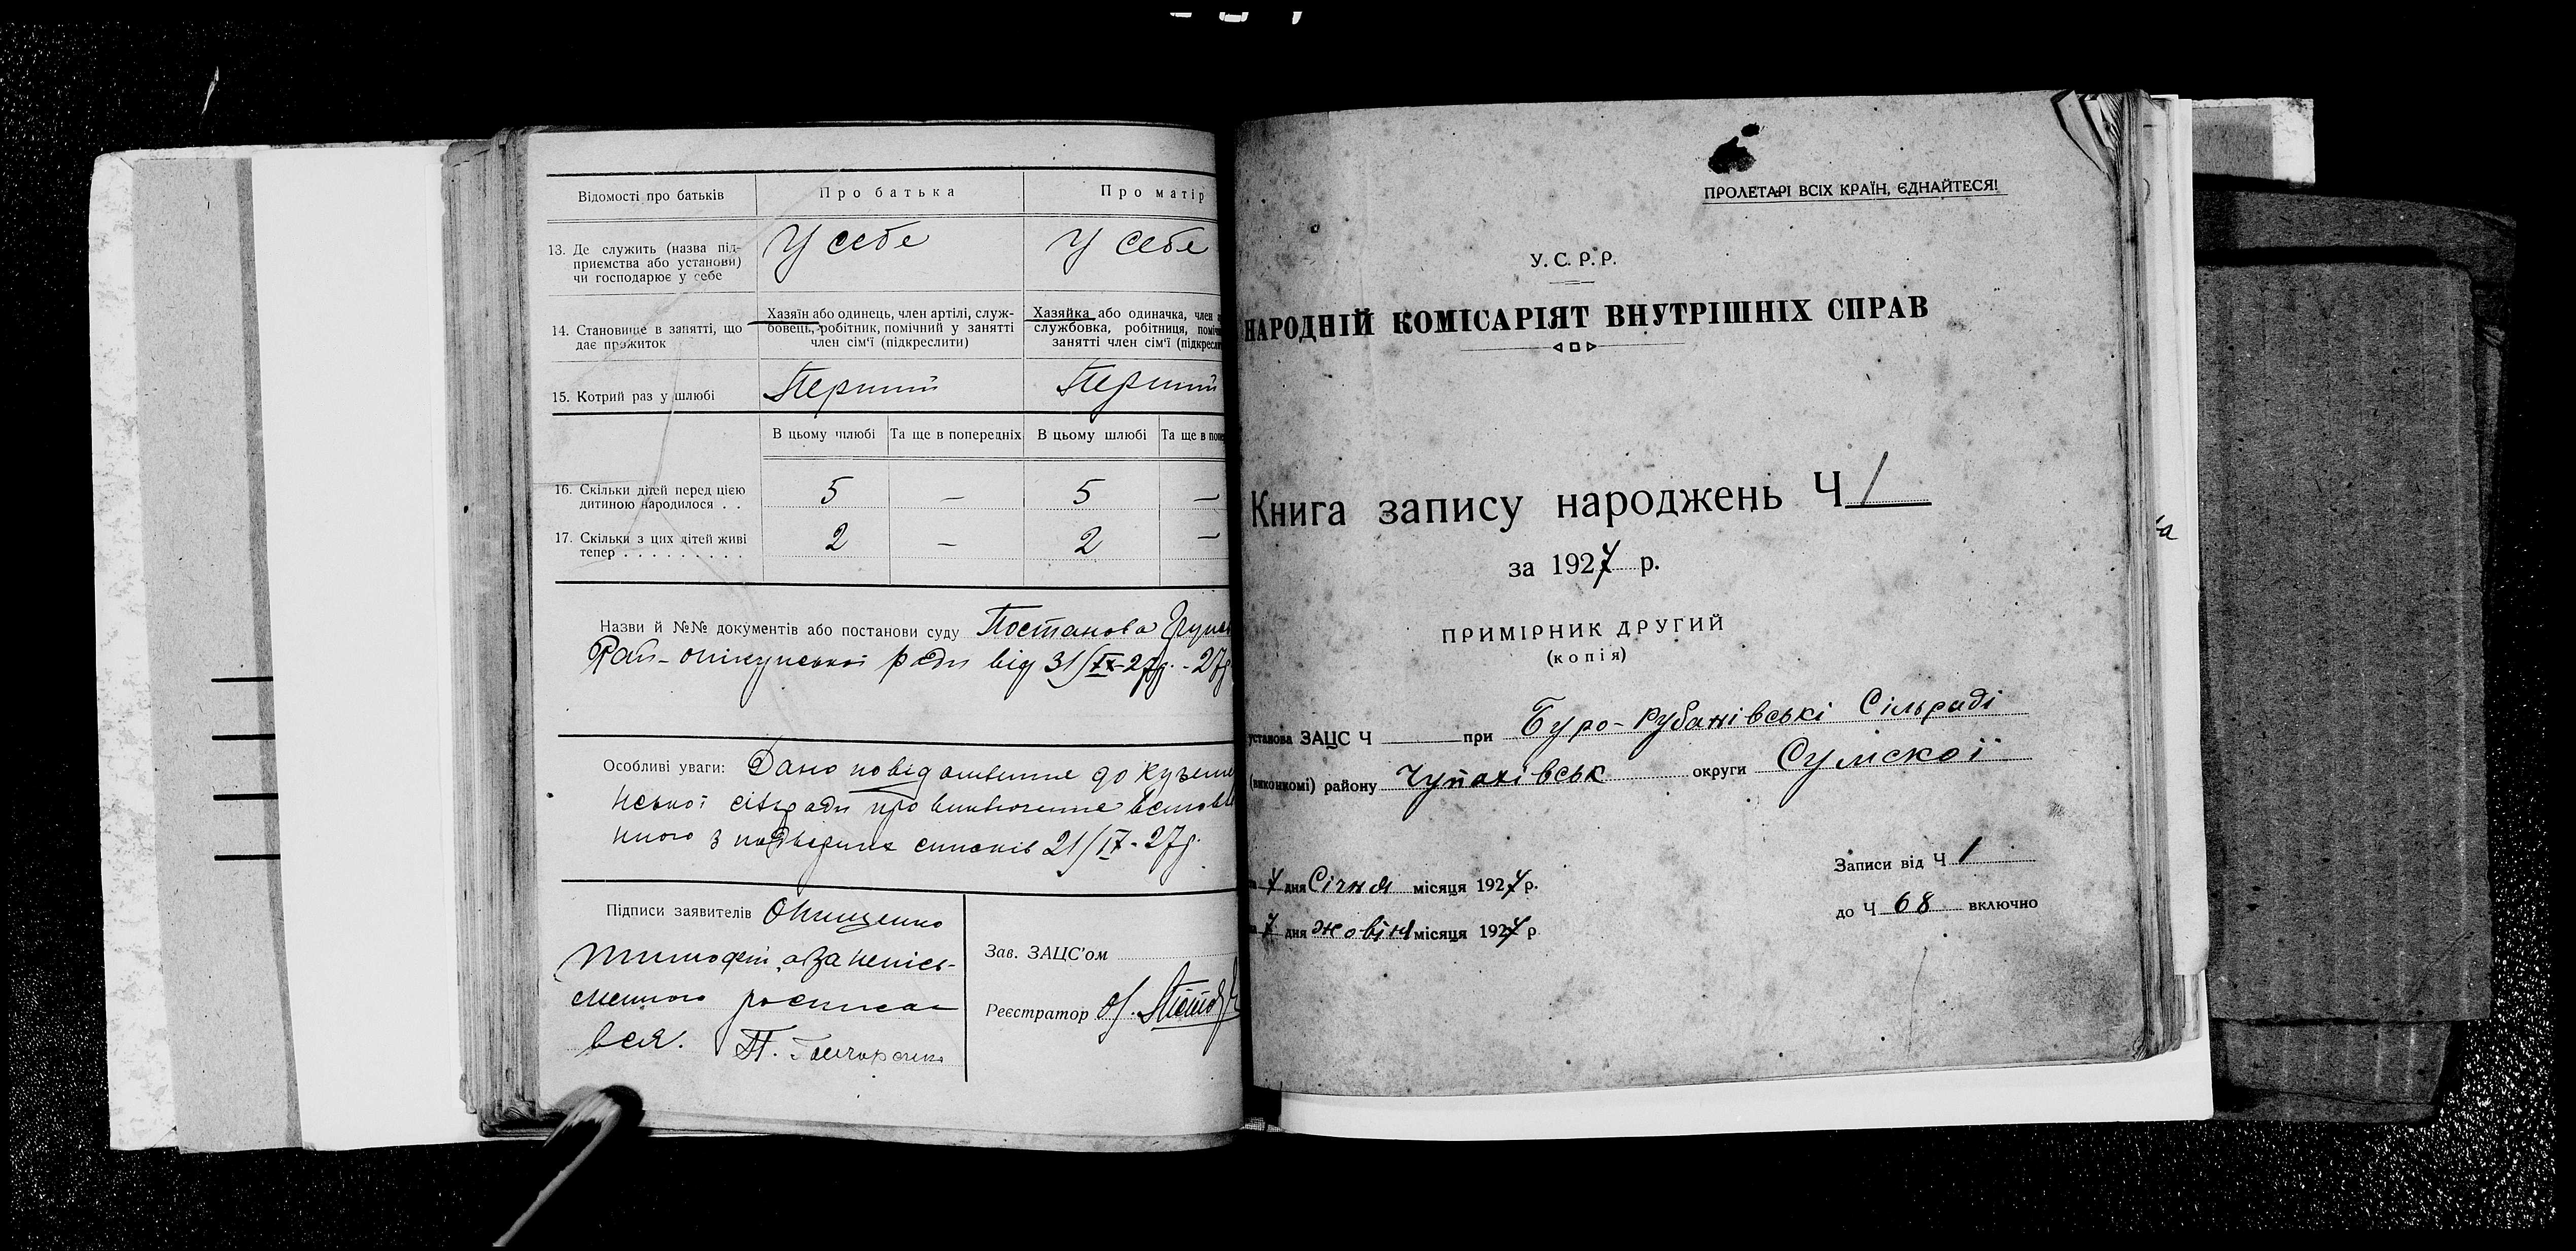 Відомості про батьків
Про батька
Про матір
13. Де служить (назва під-
приємства або установи)
чи господарює у себе
У себе
У себе
14. Становище в занятті, що
дає прожиток
Хазяїн або одинець, член артілі, служ-
бовець, робітник, помічний у занятті
член сім'ї (підкреслити)
Хазяйка або одиначка, член
службовка, робітниця,
занятті член сім'ї
15. Котрий раз у шлюбі
Перший
Перший
В цьому шлюбі
Та ще в попередніх
В цьому шлюбі
Та ще в
16. Скільки дітей перед цією
дитиною народилося . .
5 — 5 —
17. Скільки з цих дітей живі
тепер . . . . . . . . .
2 — 2 —
Назви й №№ документів або постанови суду Постанова
Рай-опікунської ради від 31/IX-27р.
Особливі уваги: Дано повідомлення до
сільради про виключення
з подвірних списків 21/IX-27р.
Підписи заявителів Онищенко
Тимофій, а за неписьменного
росписався.
П. Гончаренко
Зав. ЗАЦС'ом
Реєстратор
ПРОЛЕТАРІ ВСІХ КРАЇН, ЄДНАЙТЕСЯ!
У.С.Р.Р.
НАРОДНІЙ КОМІСАРІЯТ ВНУТРІШНІХ СПРАВ
Книга запису народжень Ч 1
за 1927 р.
ПРИМІРНИК ДРУГИЙ
(копія)
установа ЗАЦС Ч при Буро-Рубанівські Сільраді
(виконкомі) району Чупахівськ округи Сумскої
7 дня Січня місяця 1927 р.
7 дня жовтня місяця 1927 р
Записи від Ч 1
до Ч 68 включно